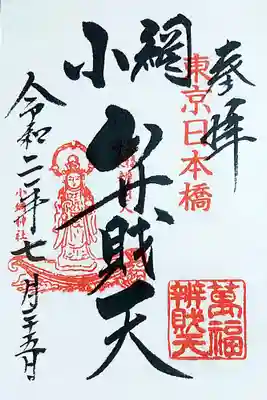 奉拝
東京日本橋
小網
弁財天
萬福
辨財天
令和二年七月二十五日
小網神社